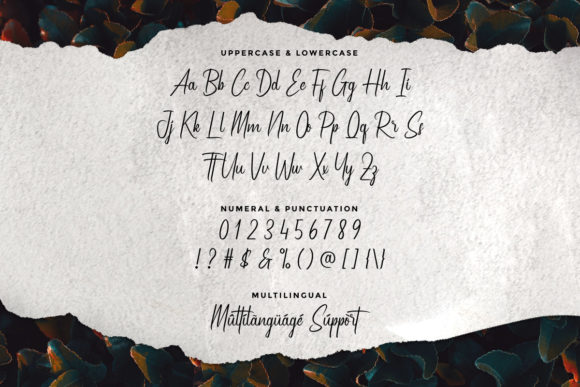 UPPERCASE & LOWERCASE
Aa Bb Cc Dd Ee Ff Gg Hh Ii
Jj Kk Ll Mm Nn Oo Pp Qq Rr Ss
Tt Uu Vv Ww Xx Yy Zz
NUMERAL & PUNCTUATION
0 1 2 3 4 5 6 7 8 9
! ? # $ & % ( ) @ [ ] { \ }
MULTILINGUAL
Múltîlàngüágé Súppört